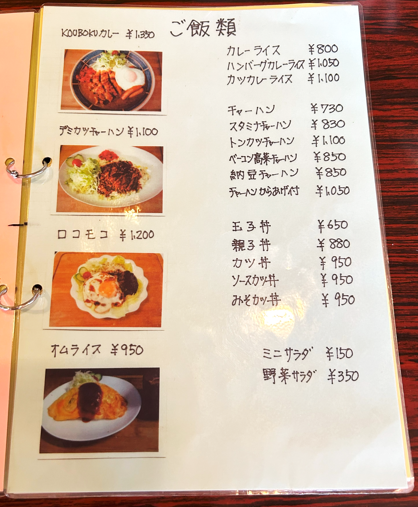 ご飯類
KOUBOKUカレー ¥1,350
デミカツチャーハン ¥1,100
ロコモコ ¥1,200
オムライス ¥950
カレーライス ¥800
ハンバーグカレーライス ¥1,050
カツカレーライス ¥1,100
チャーハン ¥730
スタミナチャーハン ¥830
トンカツチャーハン ¥1,100
ベーコン高菜チャーハン ¥850
納豆チャーハン ¥850
チャーハンからあげ付 ¥1,050
玉子丼 ¥650
親子丼 ¥880
カツ丼 ¥950
ソースカツ丼 ¥950
みそカツ丼 ¥950
ミニサラダ ¥150
野菜サラダ ¥350